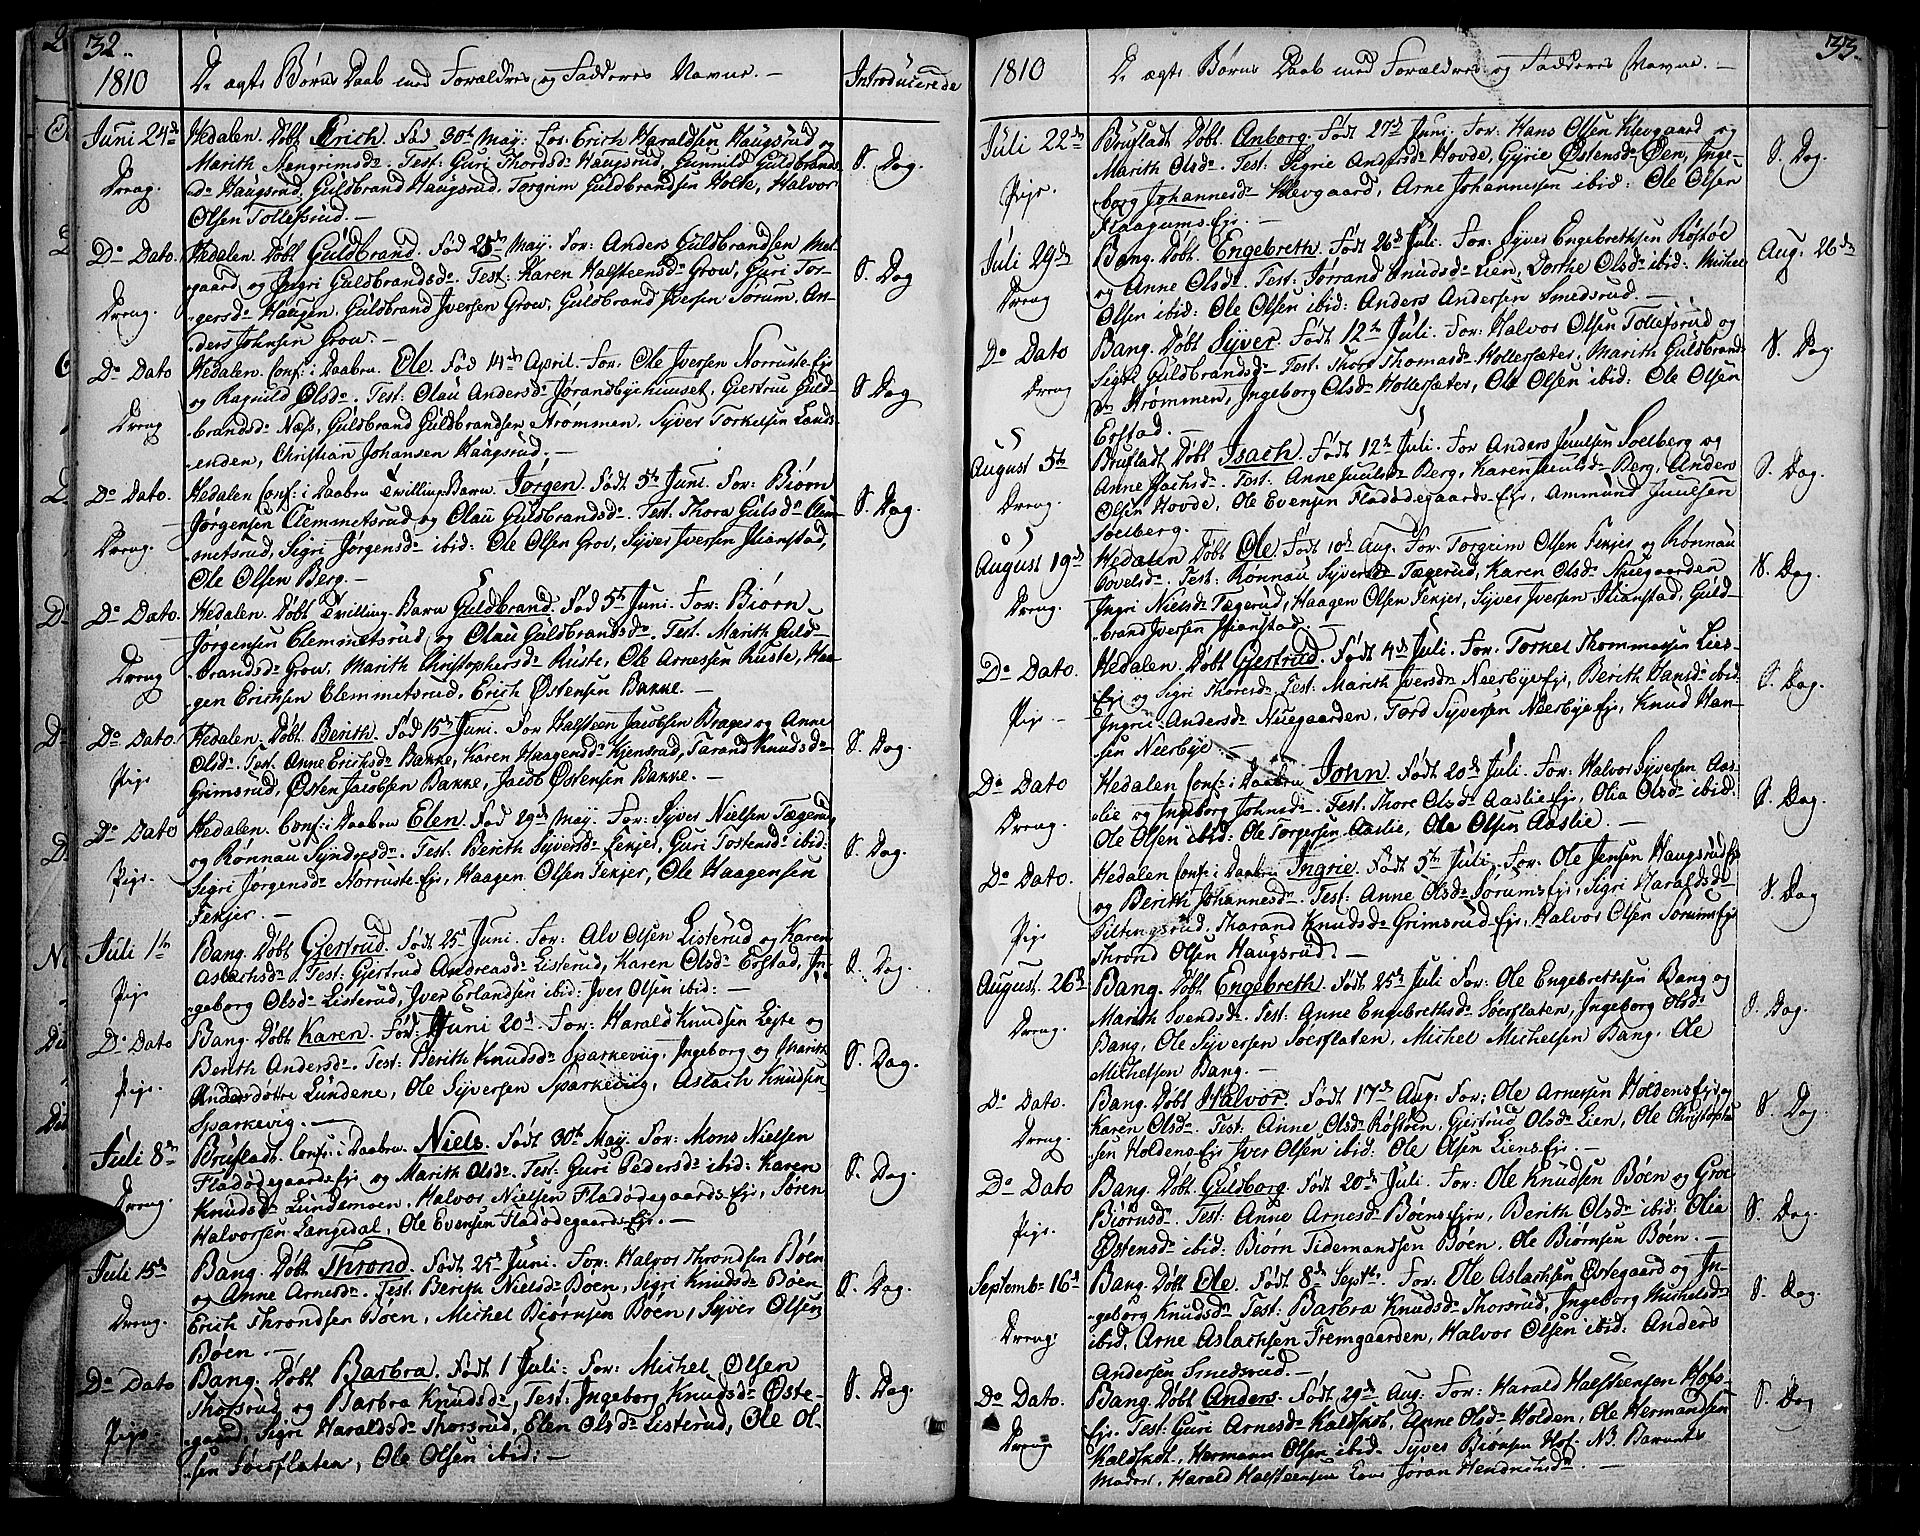 32.
1810 De ægte Børns Daab med Forældres og Faddernes Navne. — Introducerede
Juni 24de Hedalen. Døbt Erich. Fød 30th May. For: Erich Haraldsen Haugsrud og
Marith Nengrimsdr. Test: Guri Thordsdr Haugsrud, Gunnild Guldbrands- S. Dag.
Dreng. dr Haugsrud, Guldbrand Haugsrud, Torgrim Guldbrandsen Holte, Halvor
Olsen Tollefsrud. —
Do Dato. Hedalen. Døbt Guldbrand. Fød 25de May. For: Anders Guldbrandsen
gaard og Ingri Guldbrandsdr. Test: Karen Halsteensdr Grow, Guri Tor- S. Dag
Dreng. gersdr Haugen, Guldbrand Iversen Grow, Guldbrand Iversen Sørum, An-
ders Johnsen Grow. —
Do Dato Hedalen. Conf: i Daaben. Ole. Fød 14de April. For: Ole Iversen Norruste Eje
og Ragnild Olsdr. Test: Olau Andersdr Jørandbyehuuset, Giertrue Guld- S. Dag
Dreng brandsdr Næss, Guldbrand Guldbrandsen Strømmen, Syver Torkelsen Lands-
enden, Christian Johansen Haugsrud. —
Do Dato. Hedalen Conf: i Daaben Tvilling-Barn. Jørgen. Født 5th Juni. For: Biørn
Jørgensen Clemmetsrud og Olau Guldbrandsdr. Test: Thora Gulsdr Clem- S. Dag.
Dreng. metsrud, Sigri Jørgensdr ibid: Ole Olsen Grov, Syver Iversen Ilianstad,
Ole Olsen Berg. —
Do Dato. Hedalen. Døbt Tvilling-Barn Guldbrand. Fød 5th Juni. For: Biørn
Jørgensen Clemmetsrud og Olau Guldbrandsdr. Test. Marith Guld-
Dreng brandsdr Grow, Marith Christophersdr Ruste, Ole Arnessen Ruste, Haa-
gen Erichsen Clemmetsrud, Erich Østensen Bakke. —
Do Dato. Hedalen. Døbt. Berith. Fød 15de Juni. For Halsteen Jacobsen Brager og Anne
Olsdr. Test. Anne Erichsdr Bakke, Karen Haagensdr Kjensrud, Tarand Knudsdr S. Dag.
Pige Grimsrud, Østen Jacobsen Bakke, Jacob Østensen Bakke. —
Do Dato Hedalen. Conf: i Daaben Elen. Fød 29de May. For: Syver Nielsen Tægerud
og Rønnau Syndresdr. Test: Berith Syversdr Fekjer, Guri Tostensdr ibid: S. Dag.
Pige. Sigri Jørgensdr Norruste Eje, Haagen Olsen Fekjer, Ole Haagensen
Fekjer. —
Juli 1te Bang. Døbt Gjertrud. Født 25de Juni. For: Alv Olsen Listerud og Karen
Aslachsdr. Test: Gjertrud Andreasdr Listerud, Karen Olsdr Erstad, In- S. Dag.
Pige geborg Olsdr Listerud, Iver Erlandsen ibid: Iver Olsen ibid: —
Do Dato Bang. Døbt Karen. Fød: Juni 20de. For: Harald Knudsen Leite og
Berith Andersdr. Test: Berith Knudsdr Sparkeviig, Ingeborg og Marith S. Dag.
Pige. Andersdøttre Lundene, Ole Syversen Sparkeviig, Aslach Knudsen
Sparkevig. —
Juli 8de Brufladt. Conf: i Daaben. Niels. Født 30th May. For: Mons Nielsen
Fladødegaards Eje og Marith Olsdr. Test: Guri Pedersdr ibid: Karen S. Dag
Dreng. Knudsdr Lundemoen, Halvor Nielsen Fladødegaards Eje, Søren
Halvorsen Langedal, Ole Evensen Fladødegaards Eje. —
Juli 15de Bang. Døbt Thrond. Født 25de Juni. For: Halvor Throndsen Bøen
og Anne Arnesdr. Test: Berith Nielsdr Boen, Sigri Knudsdr Bøen S. Dag.
Dreng. Erich Throndsen Bøen, Michel Biørnsen Bøen, Syver Olsen
Bøen. —
Do Dato Bang. Døbt Barbra. Født 1 Juli: For: Michel Olsen
Thorsrud og Barbra Knudsdr, Test: Ingeborg Knudsdr Øste- S. Dag.
Pige. gaard, Sigri Haraldsdr Thorsrud, Elen Olsdr Listerud, Ole Ol-
sen Søerflaten, Ole Olsen ibid: —
33.
1810 De ægte Børns Daab med Forældres og Faddernes Navne. —
Juli 22de Brufladt. Døbt Anborg. Født 27de Juni. For: Hans Olsen Klevgaard og
Marith Olsdr. Test: Sigrie Andersdr Hovde, Gyrie Østensdr Øen, Inge- S. Dag.
Pige. borg Johannesdr Klevgaard, Arne Johannessen ibid: Ole Olsen
Flaagums Eje. —
Juli 29de Bang. Døbt Engebreth. Født 26de Juli. For: Syver Engebrethsen Røstøe Aug. 26de
og Anne Olsdr. Test: Jorrand Knudsdr Lien, Dorthe Olsdr ibid: Michel
Dreng Olsen ibid: Ole Olsen ibid: Anders Andersen Smedsrud. —
Do Dato Bang. Døbt Syver. Født 12te Juli. For: Halvor Olsen Tollefsrud og
Sigri Guldbrandsdr. Test: Thore Thomasdr Hollersæter, Marith Guldbrands- S. Dag.
Dreng dr Strømmen, Ingeborg Olsdr Hollersæter, Ole Olsen ibid: Ole Olsen
Erstad. —
August 5te Brufladt Døbt Isach. Født 12te Juli. For Anders Juulsen Soelberg og
Anne Isachsdr. Test. Anne Juulsdr Berg, Karen Juulsdr Berg, Anders S. Dag.
Dreng. Olsen Hovde, Ole Evensen Fladødegaards Eje, Ammund Juulsen
Soelberg. —
August 19de Hedalen Døbt Ole Født 10de Aug. For. Torgrim Olsen Fekjer og Rønnau
Bovelsdr. Test: Rønnau Syversdr Tægerud, Karen Olsdr Nuegaarden S. Dag.
Dreng. Ingri Nielsdr Tægerud, Haagen Olsen Fekjer, Syver Iversen Ilianstad, Guld-
brand Iversen Ilianstad. —
Do Dato. Hedalen. Døbt Gjertrud. Født 4de Juli. For: Torkel Thommassen Lies-
Eje og Sigri Thoresdr. Test: Marith Iversdr Neerbye Eje, Berith Hansdr ibid S. Dag.
Pige. — Ingrie Andersdr Nuegaarden, Tord Syversen Neerbye Eje, Knud Han-
sen Neerbye. —
Do Dato Hedalen Conf: i Daaben John. Født 20de Juli. For: Halvor Syversen Aas-
lie og Ingeborg Johnsdr. Test: Thore Olsdr Aaslie Eje, Olia Olsdr ibid: S. Dag.
Dreng. Ole Olsen ibid: Ole Torgersen Aaslie, Ole Olsen Aaslie. —
Do Dato. Hedalen Conf: i Daaben Ingrie. Født 5te Juli. For: Ole Jensen Haugsrud Eje
og Berith Johannesdr. Test: Anne Olsdr Sørums Eje, Sigri Haraldsdr S. Dag
Pige Siltingsrud, Tharand Knudsdr Grimsrud Eje, Halvor Olsen Sørums Eje
Thrond Olsen Haugsrud. —
August. 26de Bang. Døbt Engebreth. Født 25de Juli For: Ole Engebrethsen Bang og
Marith Svendsdr. Test: Anne Engebrethsdr Søerflaten, Ingeborg Olsdr S. Dag.
Dreng. Bang, Ole Syversen Søerflaten, Michel Michelsen Bang. Ole
Michelsen Bang. —
Do Dato. Bang. Døbt Halvor. Født 17de Aug: For: Ole Arnesen Holdens Eje og
Karen Olsdr. Test: Anne Olsdr Røstøen, Gjertrud Olsdr Lien, Ole Christophe- S. Dag.
Dreng. sen Holdens Eje Iver Olsen ibid: Ole Olsen Liens Eje. —
Do Dato Bang. Døbt. Guldborg. Født 20de Juli. For: Ole Knudsen Bøen og Groe
Biørnsdr. Test: Anne Arnesdr Bøens Eje, Berith Olsdr ibid: Olia S. Dag.
Pige. Østensdr ibid: Biørn Tidemandsen Bøen, Ole Biørnsen Bøen. —
Septembr 16de Bang. Døbt Ole. Født 8de Septbr. For: Ole Aslachsen Østegaard og In-
geborg Knudsdr. Test: Barbra Knudsdr Thorsrud, Ingeborg Michelsdr S. Dag.
Dreng: ibid, Arne Aslachsen Fremgaarden, Halvor Olsen ibid: Anders
Andersen Smedsrud. —
Do Dato. Bang. Døbt Anders. Født 29de Aug. For: Harald Halsteensen Hofs-
Eje. Test: Guri Arnesdr Kaldskot, Anne Olsdr Holden, Ole Hermandsen S. Dag
Dreng Kaldskot, Hermann Olsen ibid: Syver Biørnsen Hof. NB. Barnets
Moder, Harald Halsteensens Jøran Hendrichsdr. —